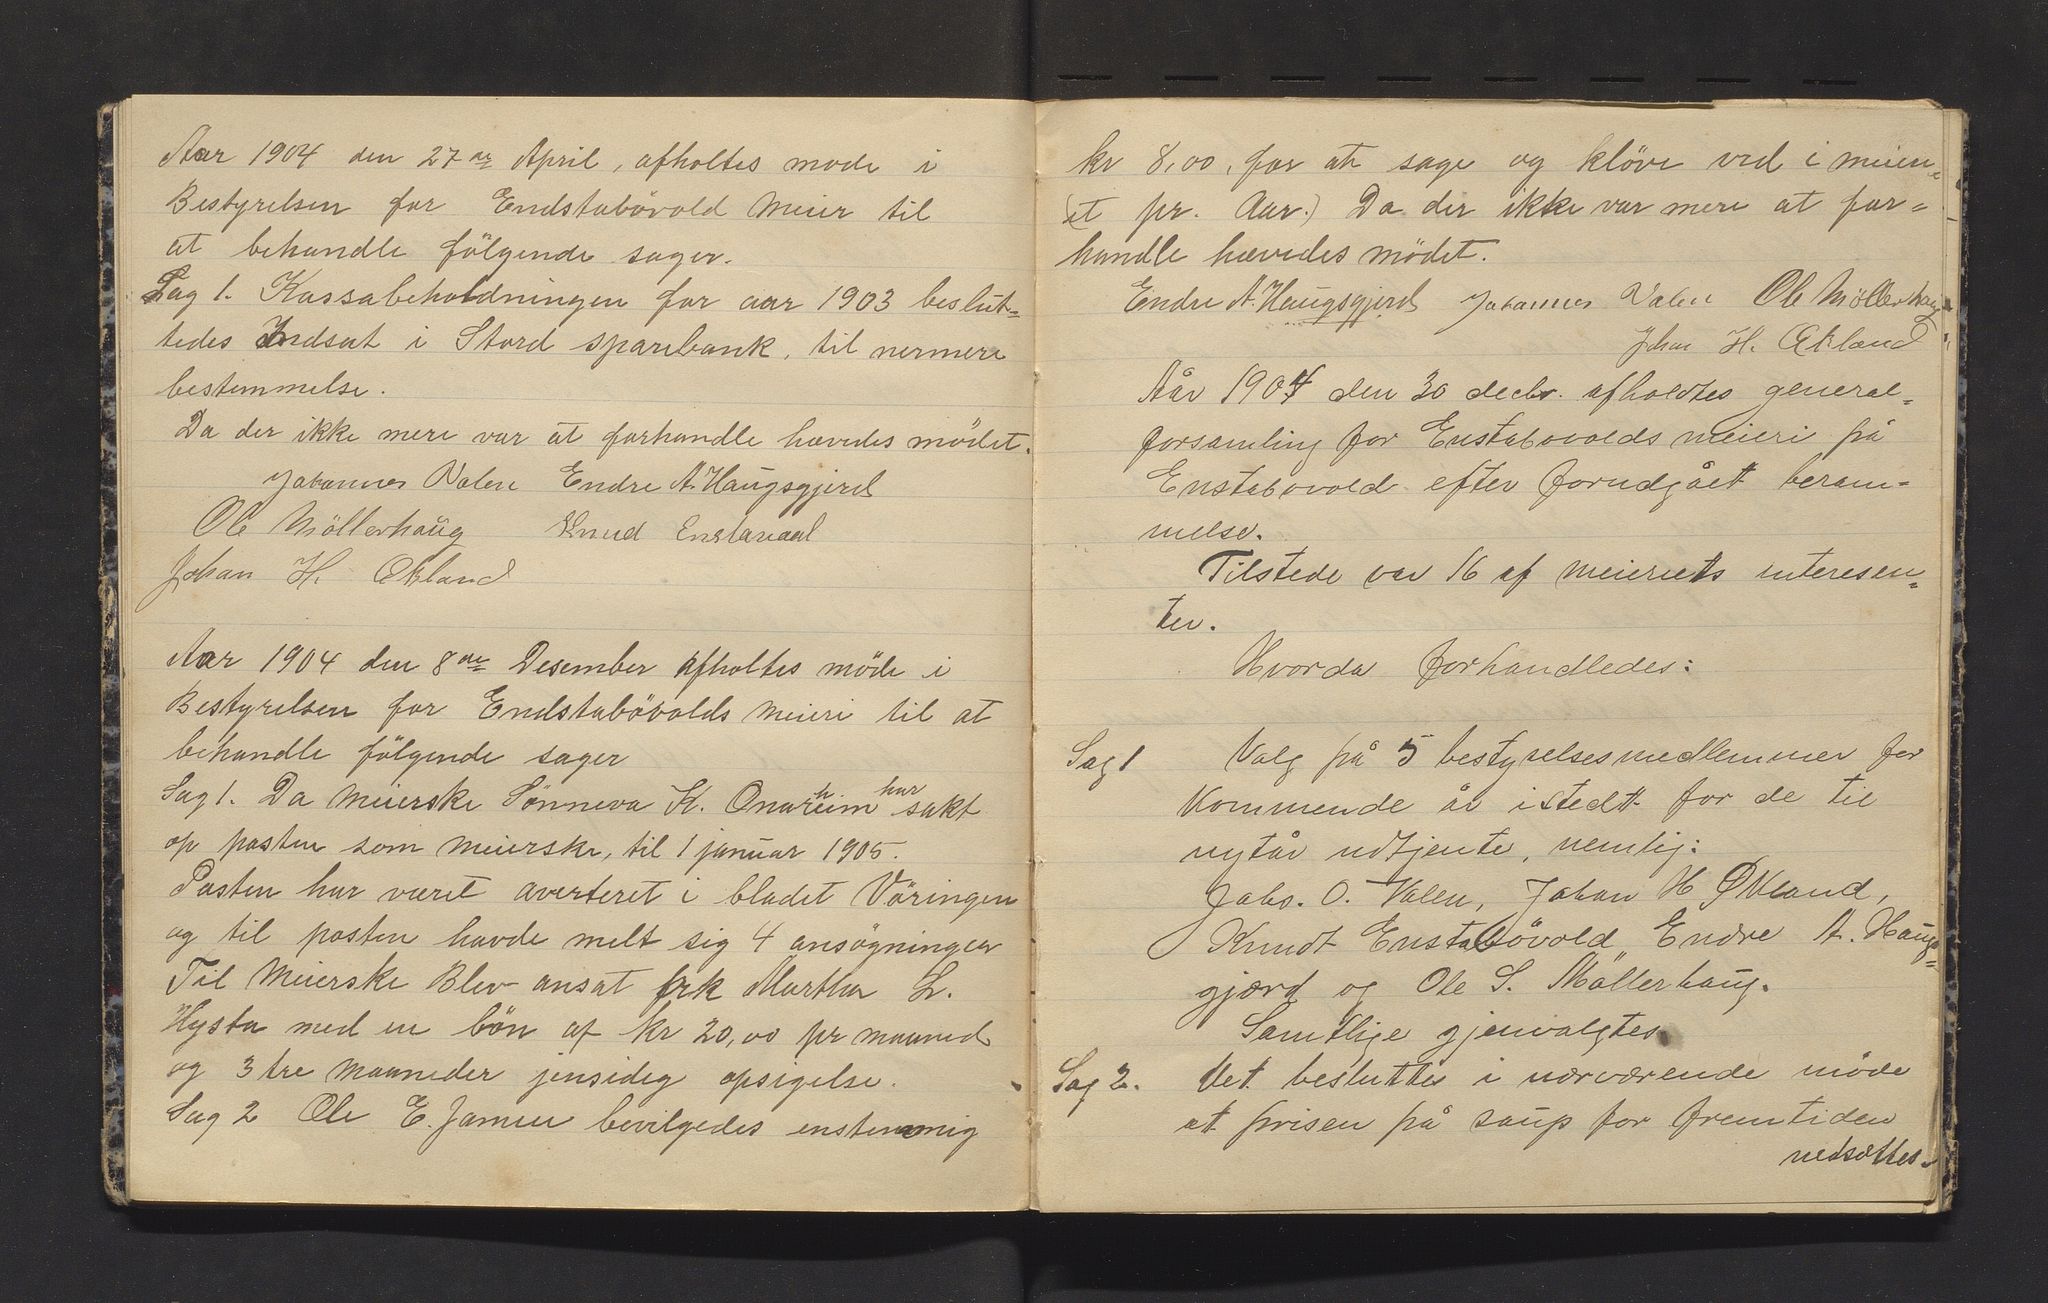 Aar 1904 den 27de April, afholtes møde i
Bestyrelsen for Endstabövold Meier til
at behandle fölgende sager.
Sag 1. Kassabeholdningen for aar 1903 beslut-
tedes Indsat i Stord sparebank, til nermere
bestemmelse.
Da der ikke mere var at forhandle hævedes mödet.
Johannes Valen Endre A. Haugsgjerd
Ole Möllerhaug Knud Enstavaal
Johan H. Økland
Aar 1904 den 8de Desember afholtes möde i
Bestyrelsen for Endstabövolds Meieri til at
behandle fölgende sager
Sag 1. Da Meierske Sönneva K. Onarheim har sakt
op posten som meierske, til 1 januar 1905.
Posten har været averteret i bladet Vöringen
og til posten havde melt sig 4 ansögninger
Til Meierske Blev ansat frk Martha L.
Hysta med en lön af kr 20,00 pr maaned
og 3 tre Maaneder jensidig opsigelse.
Sag 2 Ole E. Jamne bevilgedes enstemmig
kr 8,00, for at sage og klöve ved i meieri-
(et pr. Aar.) Da der ikke var mere at for=
handle hævedes mödet.
Endre A. Haugsgjerd Johannes Valen Ole Möllerhaug
Johan H. Økland
Aår 1904 den 30 decbr. afholdtes general=
forsamling for Enstabovolds meieri på
Enstabovold efter forudgået beram=
melse.
Tilstede var 16 af meieriets interesen=
ter.
Hvorda forhandledes:
Sag 1 Valg på 5 bestyrelsesmedlemmer for
kommende år istedt for de til
nytår udtjente, nemlig:
Johs. O. Valen, Johan H Økland,
Knudt Enstabövold Endre A. Haugs=
gjærd og Ole S. Möllerhaug.
Samtlige gjenvalgtes.
Sag 2. Det besluttes i nærværende möde
at prisen på saup for fremtiden
nedsættes